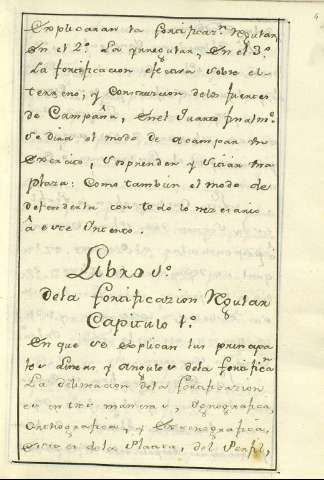 Explicaran la fortificaz.n Regular,
En el 2.o La yrregular, En el 3.o
La fortificacion efectiva sobre el
terreno; y Construcion de los fuertes
de Campaña, En el Quarto finalm.te
se dira el modo de acampar un
Exercito, Sorprender y Sitiar una
plaza: Como tambien el modo de
defenderla con todo lo necesario
â este Yntento.
Libro 1.o
de la fortificazion Regular
Capitulo 1.o
En que se explican las principa
les Lineas y angulos de la fortifica.n
La delineacion de la fortificazion
es en tres maneras, Ygnografica,
Orthografica, y Scenografica,
de la Planta, del Perfil,